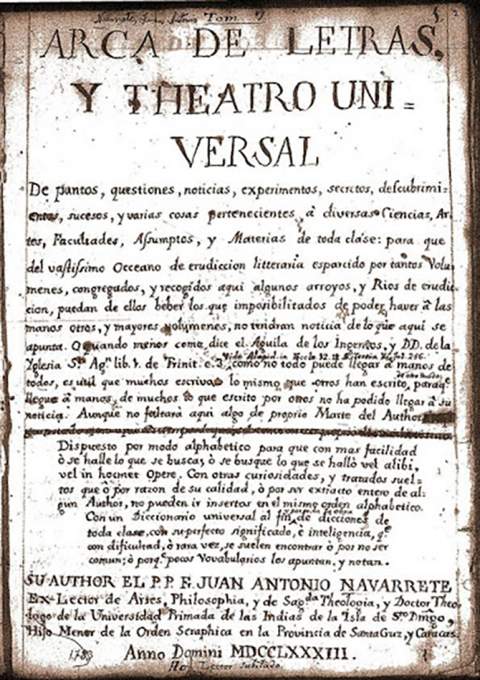 Navarrete, Juan Antonio Tom. 1
ARCA DE LETRAS,
Y THEATRO UNI=
VERSAL
De puntos, questiones, noticias, experimentos, secretos, descubrimi-
entos, sucesos, y varias cosas pertenecientes à diversas Ciencias, Ar-
tes, Facultades, Assumptos, y Materias de toda clase: para que
del vastissimo Occeano de erudiccion litteraria esparcido por tantos Volu-
menes, congregados, y recogidos aqui algunos arroyos, y Rios de erudic-
cion, puedan de ellos beber los que imposibilitados de poder haver à las
manos otros, y mayores volumenes, no tendran noticia de lo que aqui se
apunta. O quando menos como dice el Aguila de los Ingenios, y DD. de la
Yglesia Sn. Agn. lib. 1. de Trinit. c. 3. como no todo puede llegar à manos de
todos, es util que muchos escrivan lo mismo que otros han escrito, paraqe.
llegue à manos, de muchos lo que escrito por otros no ha podido llegar à su
noticia. Aunque no faltarà aqui algo de proprio Marte del Author
Dispuesto por modo alphabetico para que con mas facilidad
ò se halle lo que se busca, ò se busque lo que se hallò vel alibi,
vel in hocmet Opere. Con otras curiosidades, y tratados suel-
tos que ò por razon de su calidad, ò por ser extracto entero de al-
gun Author, no pueden ir insertos en el mismo orden alphabetico.
Con un Diccionario universal al fin de dicciones de
toda clase, con su perfecto significado, è inteligencia, qe.
con dificultad, ò rara vez, se suelen encontrar ò por no ser
comun; ò porqe. pocos Vocabularios los apuntan, y notan.
SU AUTHOR EL P. P. F. JUAN ANTONIO NAVARRETE
Ex-Lector de Artes, Philosophia, y de Sagda. Theologia, y Doctor Theo-
logo de la Universidad Primada de las Indias de la Isla de Sto. Dmgo,
Hijo Menor de la Orden Seraphica en la Provincia de Santa Cruz, y Caracas.
1783 Anno Domini MDCCLXXXIII. 1
Lector Jubilado.